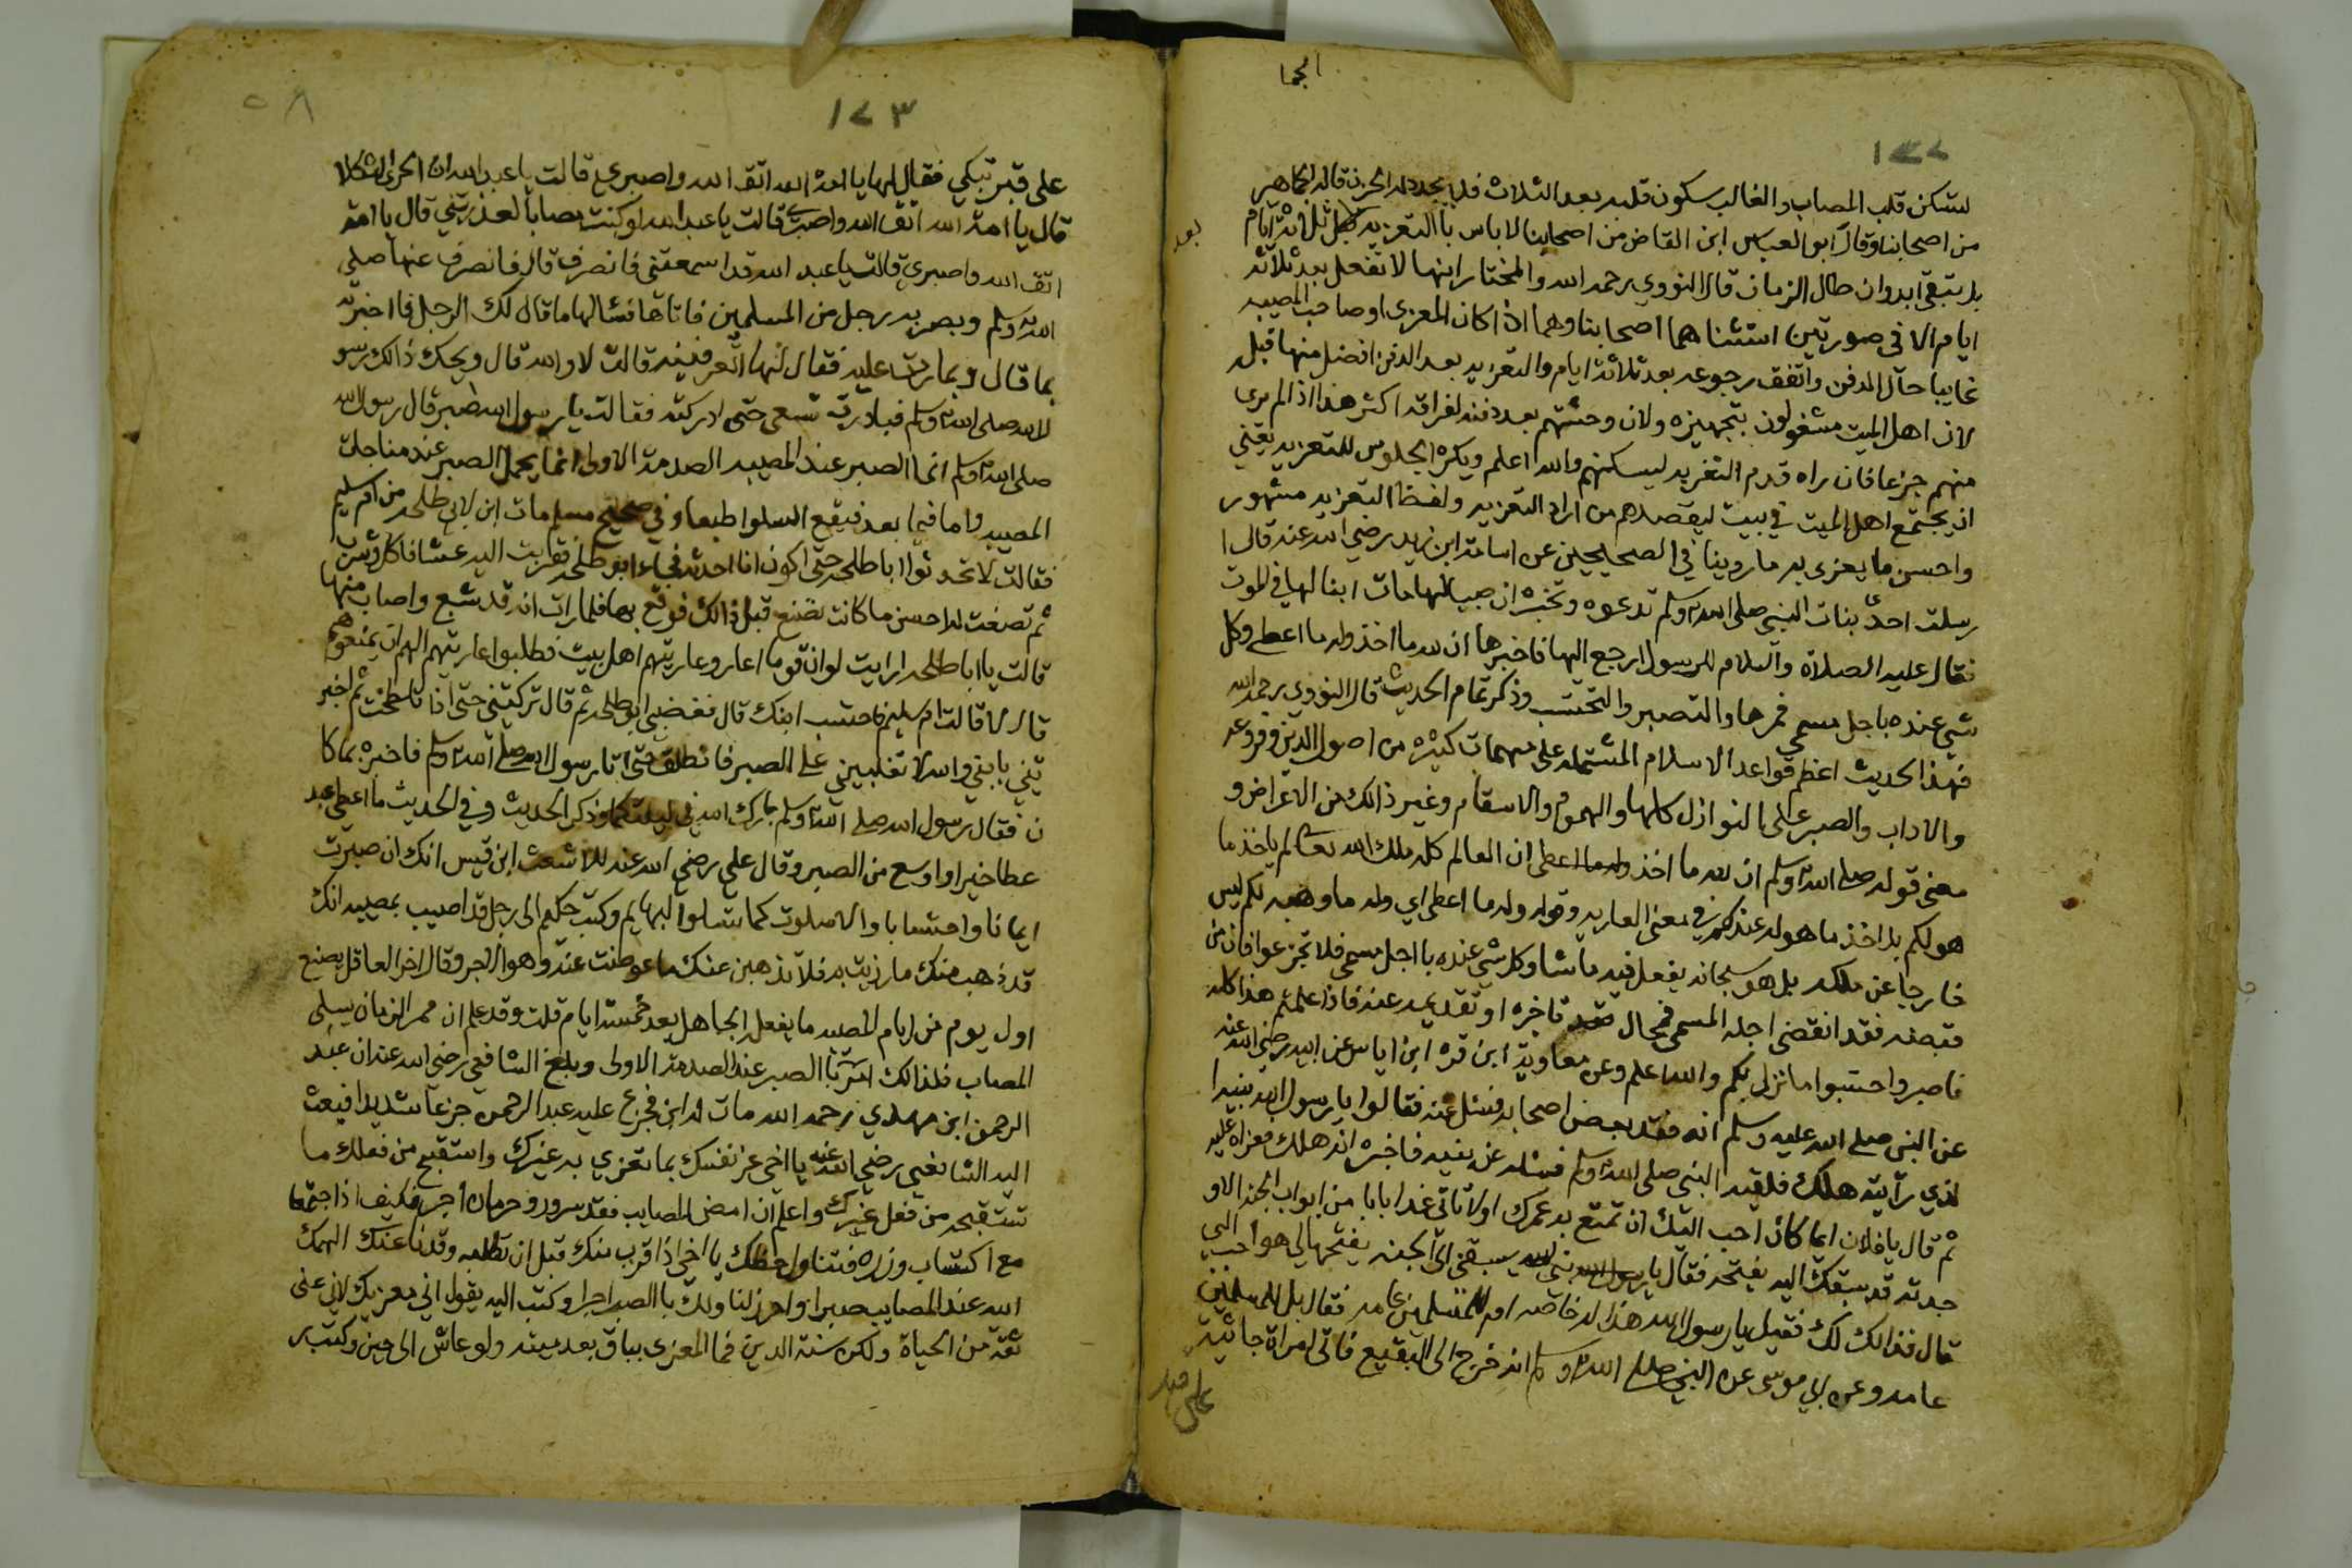 الجما
١٧٢
ليسكن قلب المصاب والغالب سكون قلبه بعد الثلاث فلا يجدد له الحزن قاله الجماهير
من اصحابنا وقال ابو العباس ابن القاص من اصحابنا لا باس بالتعزيه بعد ثلاثة ايام
بل يتبقى ابدا وان طال الزمان قال النووي رحمه الله والمختار انها لا تفعل بعد ثلاثة
ايام الا في صورتين استثناهما اصحابنا وهما اذا كان المعزى او صاحب المصيبه
غايبا حال الدفن واتفق رجوعه بعد ثلاثة ايام والتعزيه بعد الدفن افضل منها قبل
لان اهل الميت مشغولون بتجهيزه ولان وحشتهم بعد دفنه لفراقه اكثر هذا اذا لم يرى
منهم جزعا فان راه قدم التعزيه ليسكنهم والله اعلم ويكره الجلوس للتعزيه يعني
ان يجتمع اهل الميت في بيت ليقصدهم من اراد التعزيه ولفظ التعزيه مشهور
واحسن ما يعزى به ما روينا في الصحيحين عن اسامة ابن زيد رضي الله عنه قال ا
رسلت احدى بنات النبي صلى الله وسلم تدعوه وتخبره ان صبيا لها مات ابنا لها في الموت
فقال عليه الصلاة والسلام للرسول ارجع اليها فاخبرها ان لله ما اخذ وله ما اعطى وكل
شي عنده باجل مسمى فمرها والتصبر والتحتسب وذكر تمام الحديث قال النووي رحمه الله
فهذا الحديث اعظم قواعد الاسلام المشتمله على مهمات كثيره من اصول الدين وفروعه
والاداب والصبر على النوازل كلها والهموم والاسقام وغير ذالك من الاعراض و
معنى قوله صلى الله وسلم ان لله ما اخذ وله ما اعطى ان العالم كله ملك الله تعالم ياخذ ما
هو لكم بل اخذ ما هو له عندكم في معنى العاريه وقوله وله ما اعطى اي وله ما وهبه لكم ليس
خارجا عن ملكه بل هو سبحانه يفعل فيه ما شا وكل شي عنده بااجل مسمى فلا تجزعوا فان من
قبضه فقد انقضى اجله المسمى فمحال تاخره او تقديمه عنه فاذا علمتم هذا كله
فاصبروا احتسبوا ما نزل بكم والله اعلم وعن معاوية ابن قره ابن اياس عن ابيه رضي الله عنه
عن النبي صلى الله عليه وسلم انه فقد بعض اصحابه فسئل عنه فقالوا يا رسول الله بنيه ا
لذي رأيته هلك فلقيه النبي صلى الله وسلم فسئله عن بنيه فاخبره انه هلك فعزاه عليه
ثم قال يا فلان ايما كان احب اليك ان تمتع به عمرك او لا تاتي غدا بابا من ابواب الجنه الا و
جدته قد سبقك اليه يفتحه فقال يا رسول الله بنيى يسبقنى الى الجنه يفتحها لي هو احب الي
قال فذالك لك فقيل يا رسول الله هذا له خاصه ام للمسلمين عامه فقال بل للمسلمين
عامه وعن ابي موسى عن النبي صلى الله وسلم انه خرج الى البقيع فاتى امراة جاثية
على قبر
بعد
١٧٣
٥٨
على قبر تبكي فقال لها يا امة الله اتق الله واصبري قالت يا عبد الله انا الحرى الثكلا
قال يا امة الله اتق الله واصبري قالت يا عبد الله لو كنت مصابا لعذرتني قال يا امة
اتق الله واصبري قالت يا عبد الله قد اسمعتني فانصرف قال فانصرف عنها صلى
الله وسلم وبصر به رجل من المسلمين فاتاها فسالها ما قال لك الرجل فاخبرته
بما قال وبما ردت عليه فقال لها اتعرفينه قالت لا والله قال ويحك ذالك رسو
ل الله صلى الله وسلم فبادرت تسعى حتى ادركته فقالت يا رسول الله اصبر قال رسول الله
صلى الله وسلم انما الصبر عند المصيبه الصدمة الاولى انما يجمل الصبر عند مفاجات
المصيبه واما فيما بعد فيقع السلوا طبعا وفي صحيح مسلم مات ابن لابي طلحه من ام سليم
فقالت لا تحدثوا ابا طلحه حتى اكون انا احدثه فجاء ابو طلحه فقربت اليه عشا فاكل وشرب
ثم تصنعت له احسن ما كانت تصنع قبل ذالك فوقع بها فلما رات انه قد شبع واصاب منها
قالت يا ابا طلحه ارايت لو ان قوما اعاروا عاريتهم اهل بيت فطلبوا عاريتهم الهم ان يمنعوهم
قال لا قالت ام سليم فاحتسب ابنك قال فغضب ابو طلحه ثم قال تركتيني حتى اذا تلطخت ثم اخبر
تيني بابني والله لا تغلبيني على الصبر فانطلق حتى اتا رسول الله صلى الله وسلم فاخبره بما كا
ن فقال رسول الله صلى الله وسلم بارك الله في ليلتكما وذكر الحديث وفي الحديث ما اعطي عبد
عطا خيرا واوسع من الصبر وقال علي رضي الله عنه للاشعث ابن قيس انك ان صبرت
ايمانا واحتسابا والا سلوت كما تسلوا البهايم وكتب حكيم الى رجل قد اصيب بمصيبه انك
قد ذهب منك ما رزيت به فلا يذهبن عنك ما عوضت عنه وهو الاجر وقال اخر العاقل يصنع
اول يوم من ايام المصيبه ما يفعل الجاهل بعد خمسة ايام قلت وقد علم ان ممر الزمان يسلى
المصاب فلذالك امرنا الصبر عند الصدمة الاولى وبلغ الشافعي رضي الله عنه ان عبد
الرحمن ابن مهدي رحمه الله مات له ابن فجزع عليه عبد الرحمن جزعا شديدا فبعث
اليه الشافعي رضي الله عنه يا اخي عز نفسك بما تعزي به غيرك واستقبح من فعلك ما
تستقبحه من فعل غيرك واعلم ان امض المصايب فقد سرور وحرمان اجر فكيف اذا اجتمعا
مع اكتساب وزره فتناول حظك يا اخي اذا قرب منك قبل ان تطلبه وقد نا عنك الهمك
الله عند المصايب صبرا واحرز لنا ولك بالصبر اجرا وكتب اليه يقول اني معزيك لاني عنى
ثقة من الحياة ولكن سنة الدين فما المعزى بباق بعد ميته ولو عاش الى حين وكتب ر